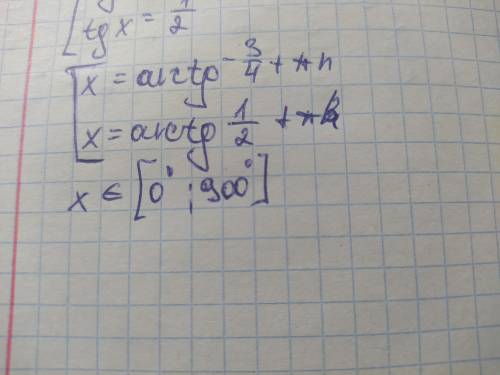 tg x = 1/2
x = arctg - 3/4 + πn
x = arctg 1/2 + πk
x ∈ [0°; 900°]